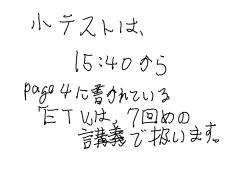 小テストは、
15:40から
page 4に書かれている
ETUは、7回めの
講義で扱います。